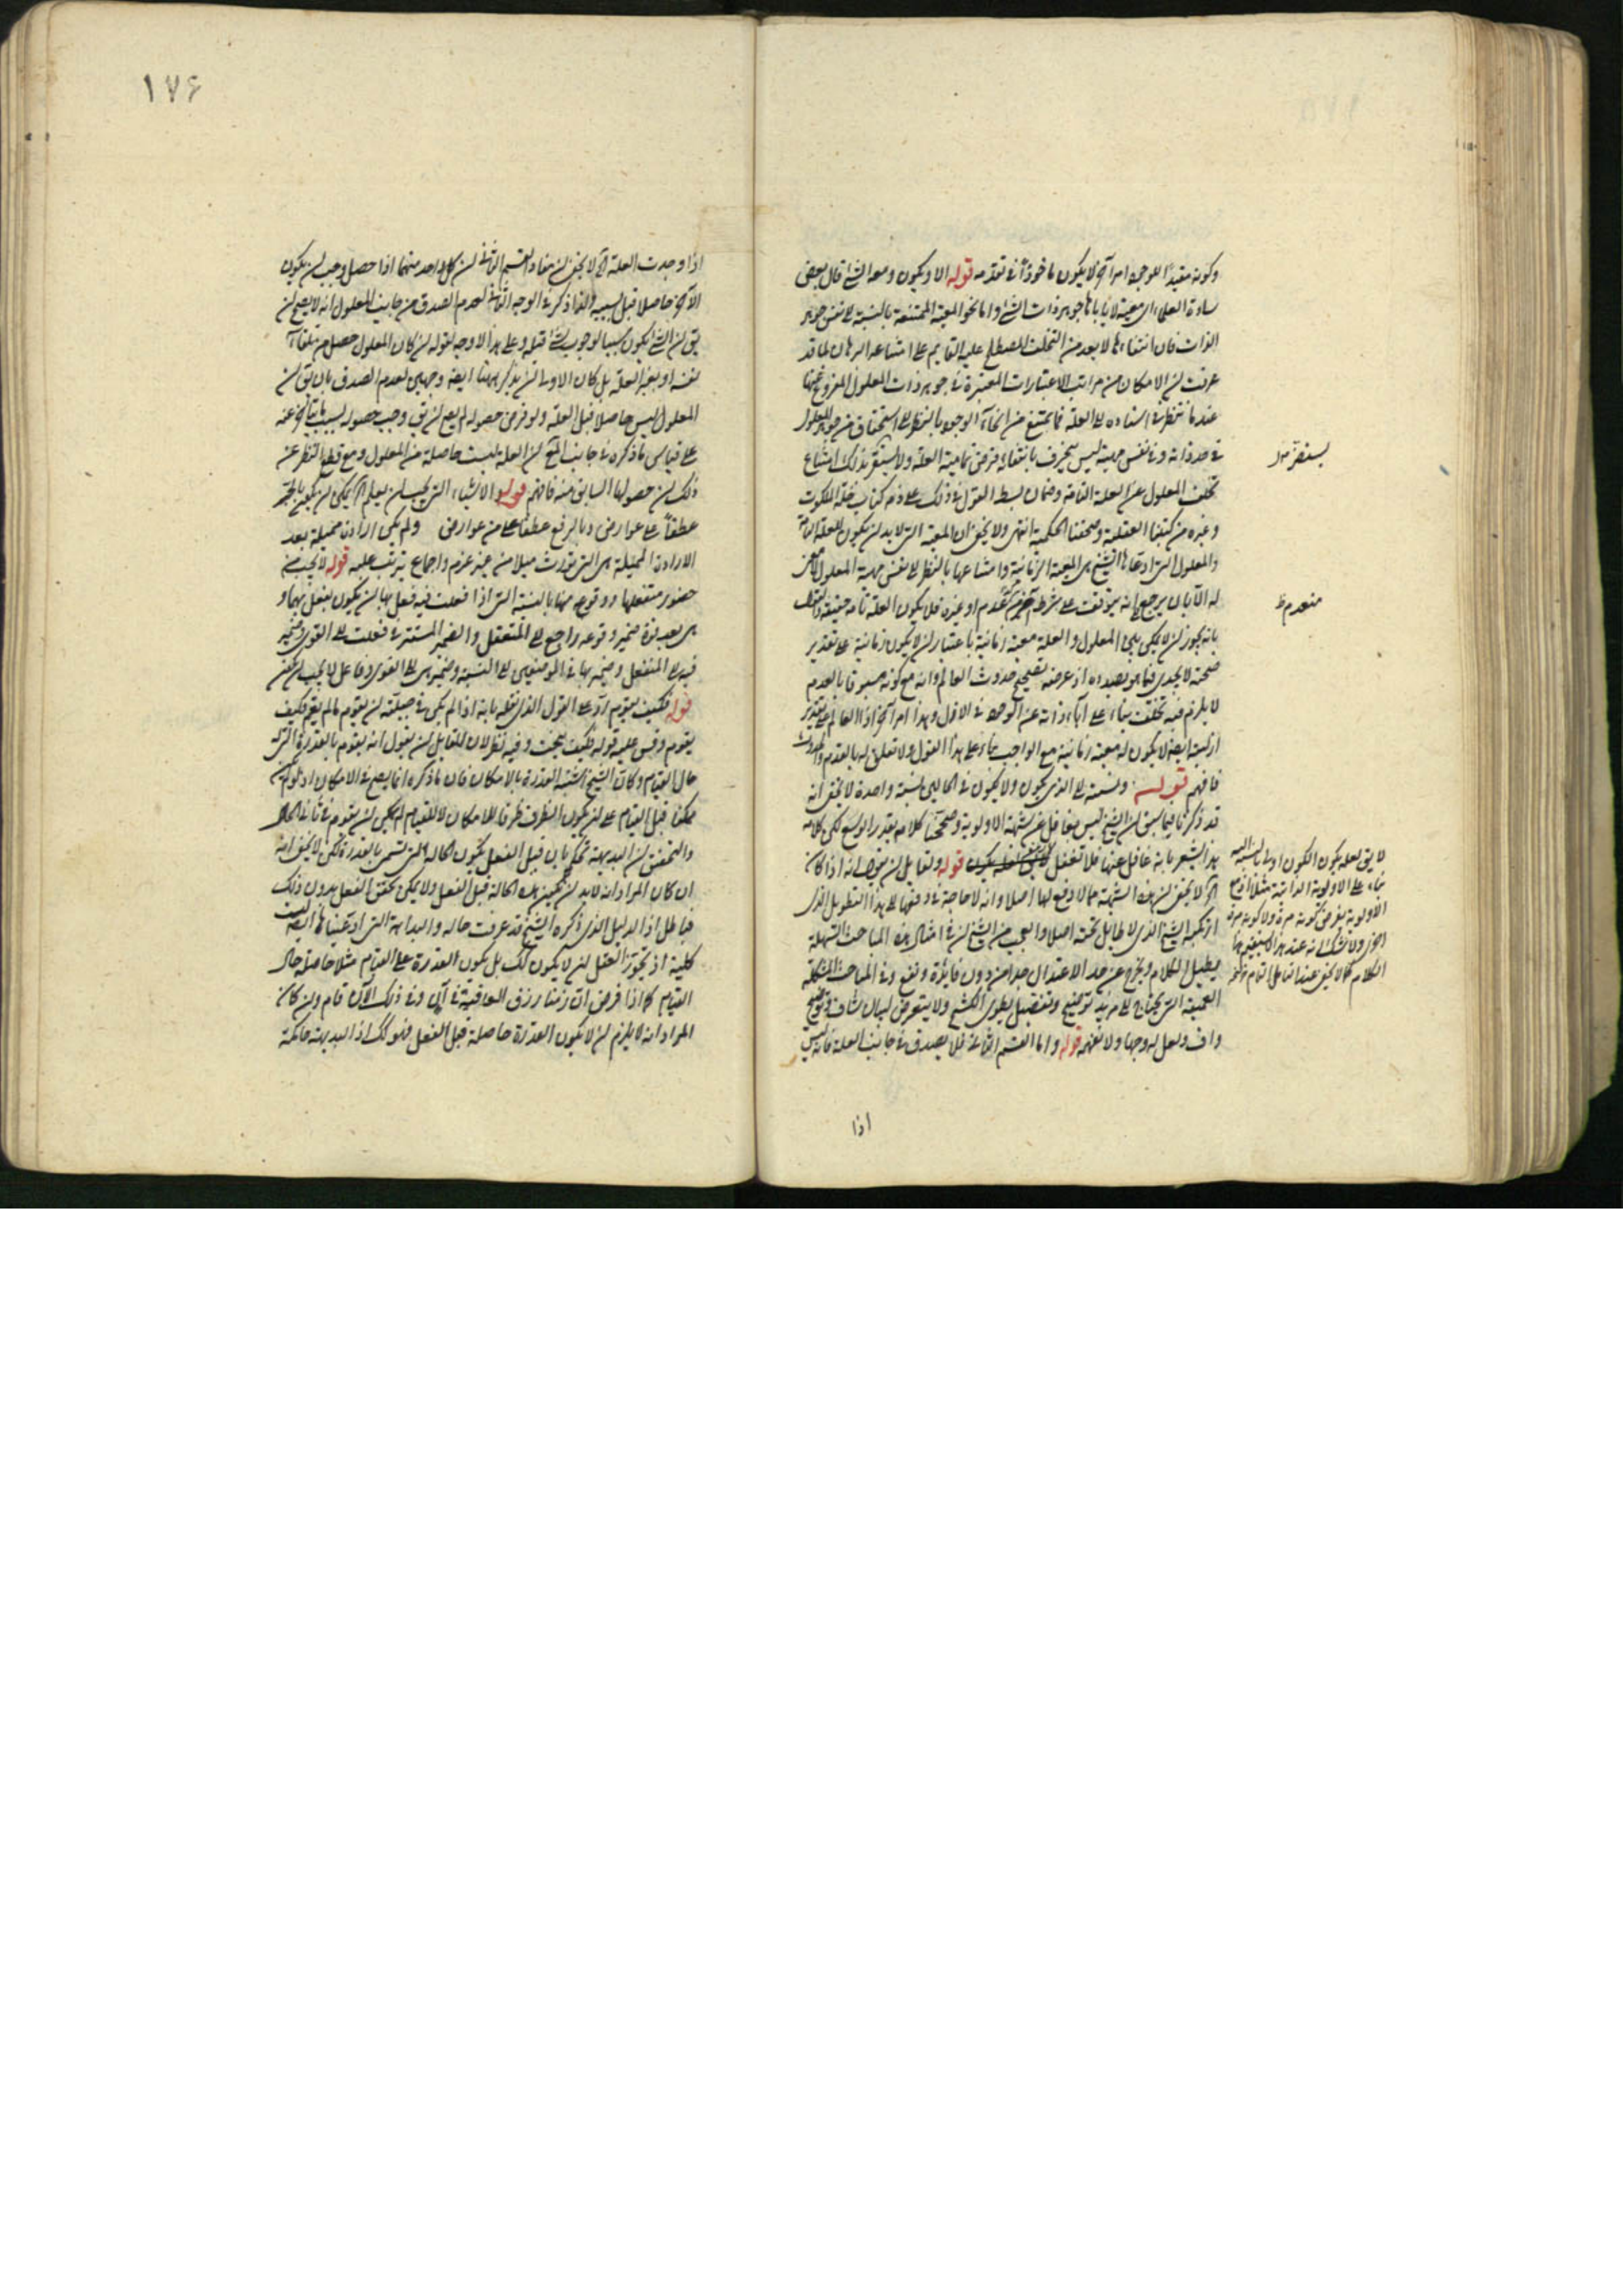 وكونه مفيدًا للوجود امر آخر لا يكون مأخوذًا في تقدمه قوله الا ويكون ومعه الشئ قال بعض
سادة العلماء اى معية لا يأباها جوهر ذات الشئ واما نحو المعية الممتنعة بالنسبة الى نفس جوهر
الذات فان انتفاءها لا يعد من التخلف المصطلح عليه القايم على امتناعه البرهان لما قد
عرفت ان الامكان من مراتب الاعتبارات المعتبرة في جوهر ذات المعلول المفروغ عنها
عند ما ننظر في استناده الى العلة فما يمتنع من انحاء الوجود بالنظر الى استحقاق من جوهر المعلول
في حد ذاته وفي نفس مهيته ليس يخرق بانتفائه فرض تمامية العلة ولا يستقر بذلك امتناع
تخلف المعلول عن العلة التامة وضمان بسط القول في ذلك على ذمة كتاب خلة الملكوت
وغيره من كتبنا العقلية وصحفنا الحكمية انتهى ولا يخفى ان المعية التى لا بد ان يكون للعلة التامة
والمعلول التى ادعاها الشيخ هى المعية الزمانية وامتناعها بالنظر الى نفس مهية المعلول
له الا بان يرجع الى انه يتوقف على شرط آخر او غيره فلا يكون العلة تامة حقيقة والقول
بانه يجوز ان لا يكون بين المعلول والعلة معية زمانية باعتبار ان لا يكون زمانية على تقدير
صحته لا يجدى فيما هو بصدده اذ غرضه تصحيح حدوث العالم وانه مع كونه مسبوقا بالعدم
لا يلزم فيه تخلف بناء على اباء ذاته عن الوجود في الازل وهذا امر آخر اذ العالم على تقدير
ازليته ايضا لا يكون له معية زمانية مع الواجب بناء على هذا القول ولا تعلق له بالعدم والحدوث
فافهم قوله ونسبته الى الذى يكون ولا يكون في الحالين نسبة واحدة لا يخفى انه
قد ذكرنا فيما سبق ان الشيخ ليس بغافل عن شبهة الاولوية وصححنا كلامه بقدر الوسع لكن كلامه
هذا يشعر بانه غافل عنها فلا تغفل قوله ولقايل ان يقول انه اذا كان
اه لا يخفى ان هذه الشبهة مما لا دفع لها اصلا وانه لا حاجة في دفعها الى هذا التطويل الذى
ارتكبه الشيخ الذى لا طايل تحته اصلا والعجب من الشيخ ان في امثال هذه المباحث السهلة
يطيل الكلام ويخرج عن حد الاعتدال جدا من دون فائدة ونفع وفي المباحث المشكلة
العميقة التى يحتاج الى مزيد توضيح وتفصيل يطوى الكشح ولا يتعرض لبيان شاف وتوضيح
واف ولعل له وجها ولا نفهمه قوله واما القسم الثانى فلا يصدق في جانب العلة فانه ليس
اذا
منعدم ظ
لا يق لعله يكون الكون اولى بالنسبة اليه
بناء على الاولوية الذاتية مثلا اذ مع
الاولوية يفرض كونه مرة ولا كونه مرة
اخرى ولا شك انه عند هذا
الكلام كما لا يخفى عند التأمل التام
١٧۶
اذا وجدت العلة اه لا يخفى ان مفاد القسم الثانى ان كل واحد منهما اذا حصل وجب ان يكون
الآخر حاصلا قبل بسببه ولذا ذكر في الوجه الثانى لعدم الصدق من جانب المعلول انه لا يصح ان
يق ان الشئ يكون سببا لوجوب شئ قبله وعلى هذا لا وجه لقوله ان كان المعلول حصل من تلقاء
نفسه او بغير العلة بل كان الاولى ان يذكر ههنا ايضا وجهين لعدم الصدق بان يق ان
المعلول ليس حاصلا قبل العلة ولو فرض حصوله لم يصح ان يق وجب حصوله بسبب ما يتأخر عنه
على قياس ما ذكره في جانب العلة ان العلة ليست حاصلة من المعلول ومع قطع النظر عن
ذلك ان حصولها السابق منه فافهم قوله الاشياء التى يجب ان يعلم اه يمكن ان يكون بالجر
عطفا على عوارض وبالرفع عطفا على من عوارض ولم يكن ارادة مميلة بعد
الارادة المميلة هى التى تورث ميلا من غير عزم واجماع يترتب عليه قوله لا يجب من
حضور منفعلها ووقوعه منها بالنسبة التى اذا فعلت فيه فعل بها ان يكون يفعل بها و
هى بعد قوة ضمير وقوعه راجع الى المنفعل والضمير المستتر في فعلت الى القوى وضمير
فيه الى المنفعل وضمير بها في الموضعين الى النسبة وضمير هى الى القوى وفاعل لا يجب ان يفعل
قوله فكيف يقوم رد على القول الذى نقله بانه اذا لم يكن في جبلته ان يقوم ما لم يقم فكيف
يقوم وقس عليه قوله فكيف ينحت وفيه نظر لان للقايل ان يقول انه يقوم بالقدرة التى له
حال القيام وكان الشيخ اشتبه القدرة بالامكان فان ما ذكره انما يصح في الامكان اذ لو لم يكن
ممكنا قبل القيام على ان يكون الظرف ظرفا للامكان لا للقيام لم يمكن ان يقوم في ثانى الحال
والتحقيق ان البديهة تحكم بان قبل الفعل يكون الحالة التى تسمى بالقدرة لكن لا يخفى انه
ان كان المراد انه لا بد ان يكون هذه الحالة قبل الفعل ولا يمكن تحقق الفعل بدون ذلك
فباطل اذ الدليل الذى ذكره الشيخ قد عرفت حاله والبداهة التى ادعيناها ايضا ليست
كلية اذ يجوز العقل ان لا يكون كذلك بل يكون القدرة على القيام مثلا حاصلة حال
القيام كما اذا فرض ان زمنا رزق العافية في آن وفي ذلك الآن قام وان كان
المراد انه لا يلزم ان لا يكون القدرة حاصلة قبل الفعل فهو كذلك اذ البديهة حاكمة